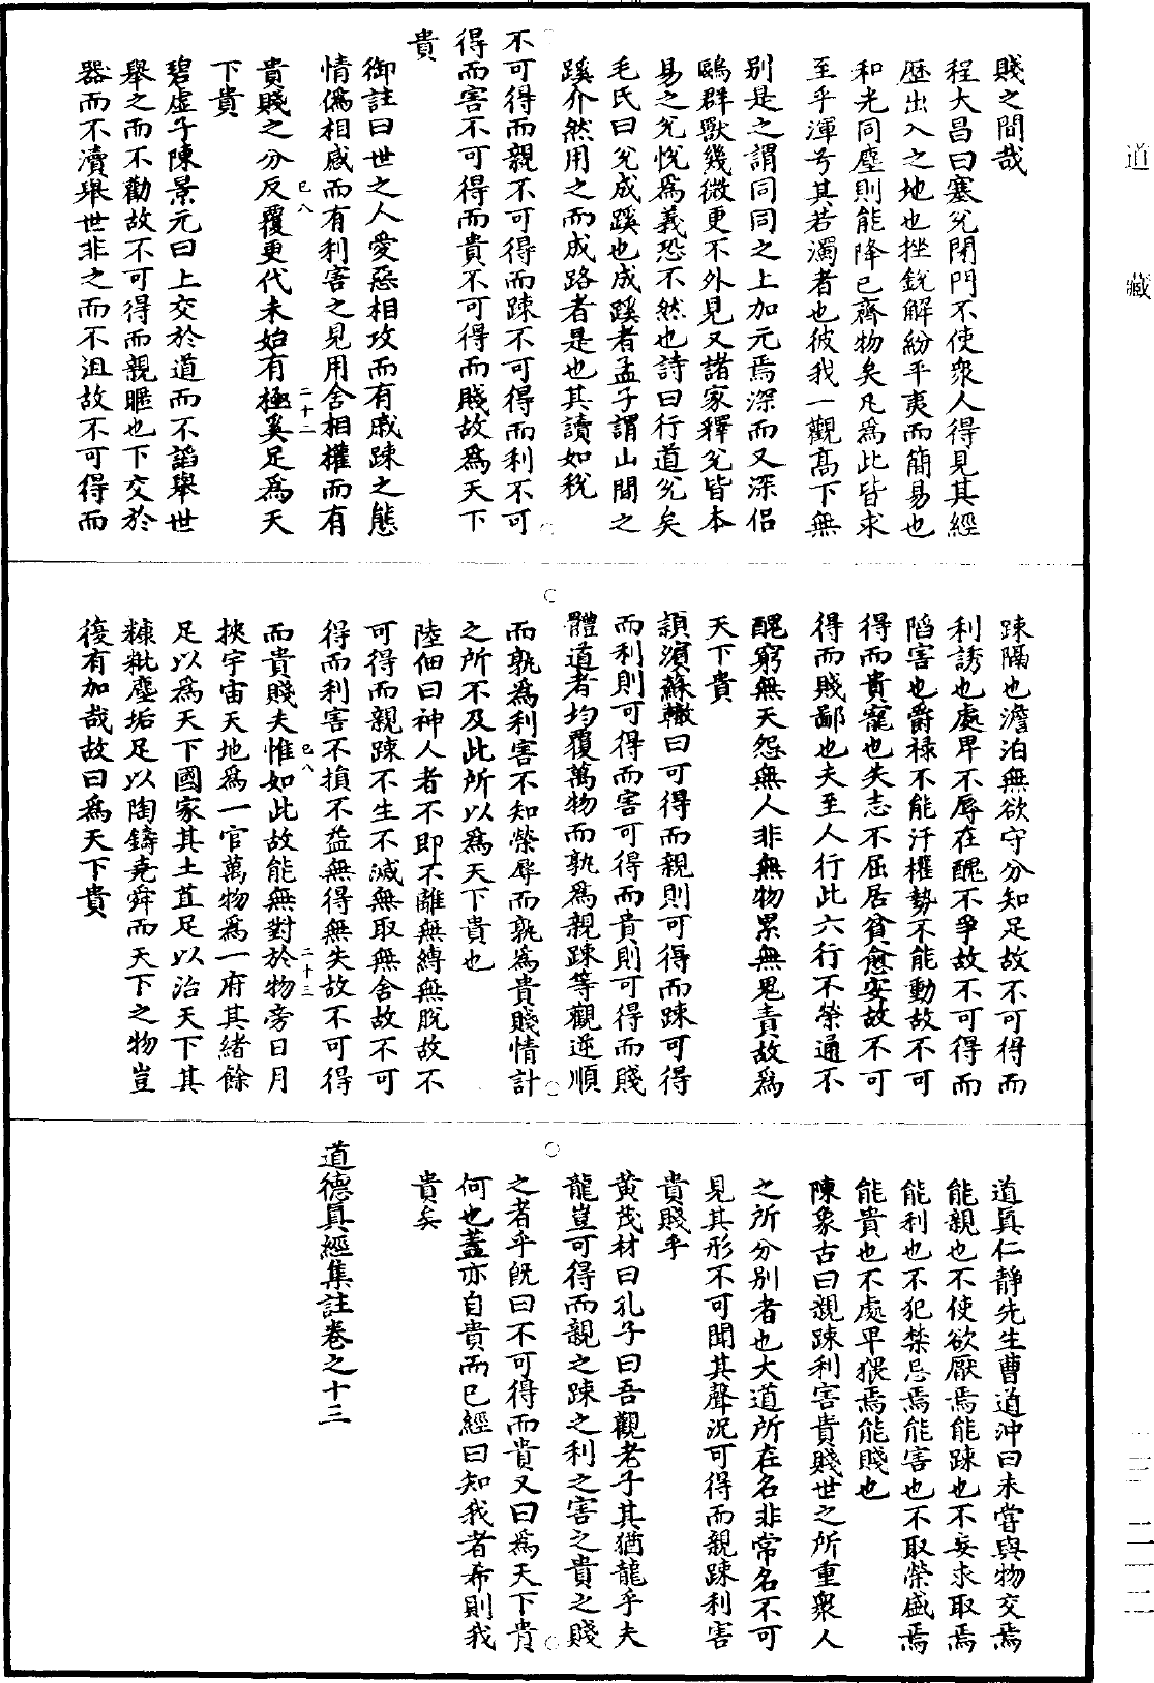 道藏
賤之間哉
程大昌曰塞兌閉門不使衆人得見其經
歷出入之地也挫銳解紛平夷而簡易也
和光同塵則能降己齊物矣凡爲此皆求
至乎渾兮其若濁者也彼我一觀高下無
別是之謂同同之上加元焉深而又深侣
鷗群獸幾微更不外見又諸家釋兌皆本
易之兌悅爲義恐不然也詩曰行道兌矣
毛氏曰兌成蹊也成蹊者孟子謂山間之
蹊介然用之而成路者是也其讀如稅
不可得而親不可得而踈不可得而利不可
得而害不可得而貴不可得而賤故爲天下
貴
御註曰世之人愛惡相攻而有戚踈之態
情僞相感而有利害之見用舍相權而有
已八
二十二
貴賤之分反覆更代未始有極奚足爲天
下貴
碧虛子陳景元曰上交於道而不謟舉世
舉之而不勸故不可得而親暱也下交於
器而不瀆舉世非之而不沮故不可得而
踈隔也澹泊無欲守分知足故不可得而
利誘也處卑不辱在醜不爭故不可得而
陷害也爵禄不能汙權勢不能動故不可
得而貴寵也失志不屈居貧愈安故不可
得而賤鄙也夫至人行此六行不榮通不
醜窮無天怨無人非無物累無鬼責故爲
天下貴
頴濱蘇轍曰可得而親則可得而踈可得
而利則可得而害可得而貴則可得而賤
體道者均覆萬物而孰爲親踈等觀逆順
而孰爲利害不知榮辱而孰爲貴賤情計
之所不及此所以爲天下貴也
陸佃曰神人者不即不離無縛無脫故不
可得而親踈不生不滅無取無舍故不可
得而利害不損不益無得無失故不可得
已八
二十三
而貴賤夫惟如此故能無對於物旁日月
挾宇宙天地爲一官萬物爲一府其緒餘
足以爲天下國家其土苴足以治天下其
糠粃塵垢足以陶鑄堯舜而天下之物豈
復有加哉故曰爲天下貴
道真仁靜先生曹道沖曰未甞與物交焉
能親也不使欲厭焉能踈也不妄求取焉
能利也不犯禁忌焉能害也不取榮盛焉
能貴也不處卑猥焉能賤也
陳象古曰親踈利害貴賤世之所重衆人
之所分別者也大道所在名非常名不可
見其形不可聞其聲況可得而親踈利害
貴賤乎
黄茂材曰孔子曰吾觀老子其猶龍乎夫
龍豈可得而親之踈之利之害之貴之賤
之者乎旣曰不可得而貴又曰爲天下貴
何也蓋亦自貴而已經曰知我者希則我
貴矣
道德真經集註卷之十三